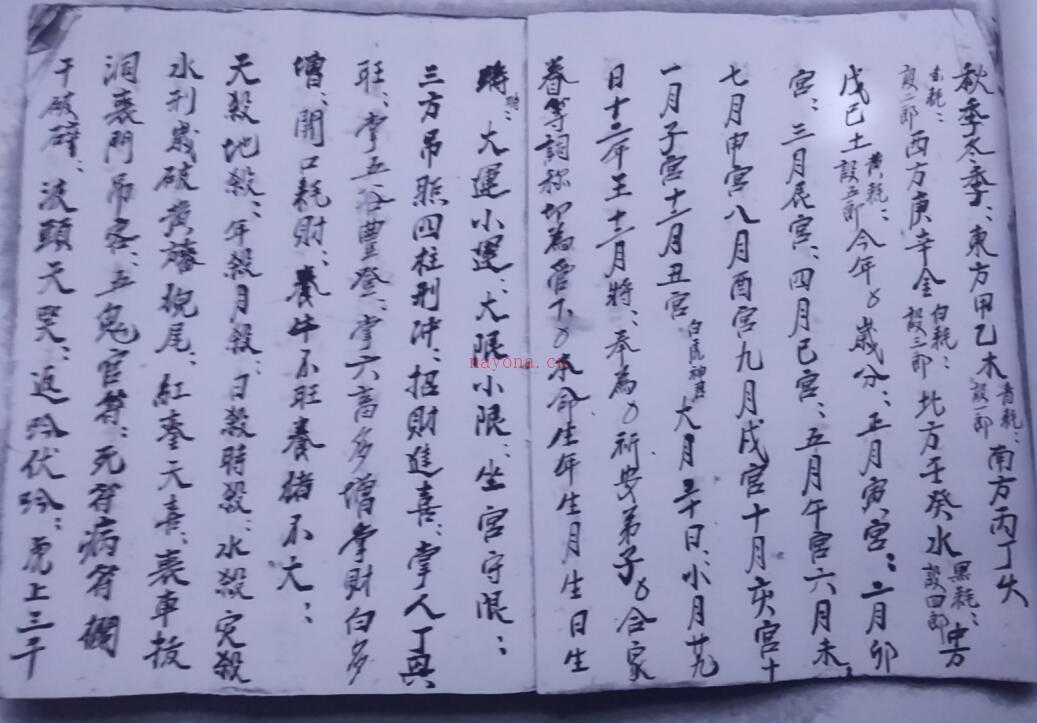 秋季冬季：東方甲乙木青耗：設一郎南方丙丁火
赤耗：設二郎西方庚辛金白耗：設三郎北方壬癸水黑耗：設四郎中方
戊己土黄耗：設五郎今年〻歲分：正月寅宮：二月卯
宮：三月辰宮：四月巳宮：五月午宮六月未
七月申宮八月酉宮九月戌宮十月亥宮十
一月子宮十二月丑宮白虎神君大月三十日：小月廿九
日十二年王十二月將：奉為〻祈安弟子〻合家
眷等詞称切為管下〻本命生年生月生日生
時：大運小運：大限小限：坐宮守限：
三方吊照四柱刑冲：招財進喜：掌人丁興
旺：掌五谷豐登：掌六畜多增掌財白多
增：開口耗財：養牛不旺養猪不大：
天殺地殺：年殺月殺：日殺時殺：水殺
水刑歲破黄旛豹尾：紅鸾天喜：喪車
喪門吊客：五鬼官符：死符病符
破碎：披頭天哭：返吟伏吟：虎上三千
nayona.cn